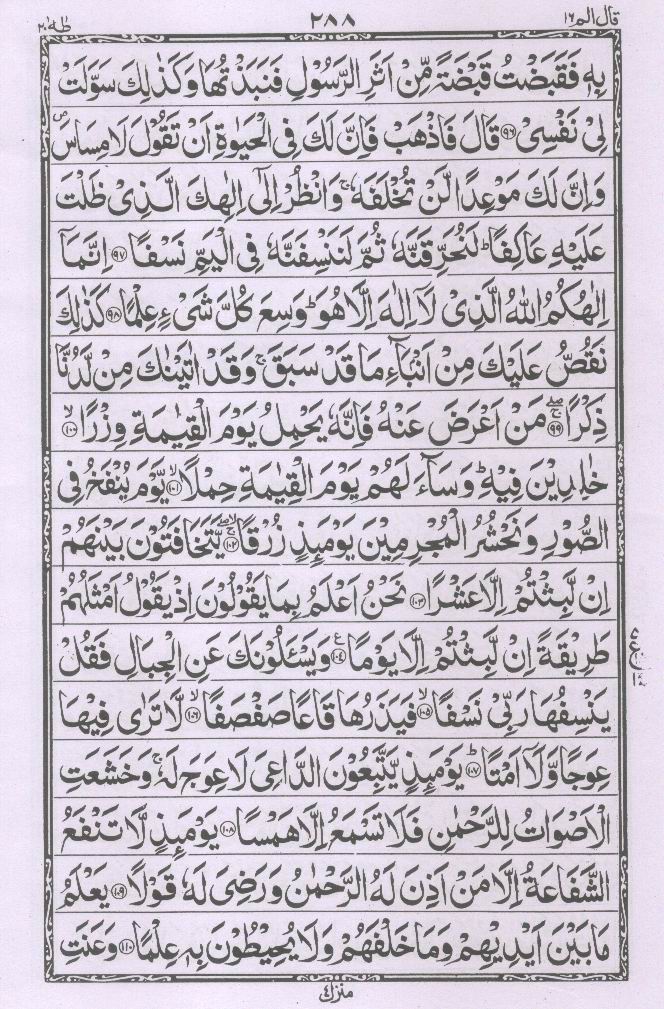 قال الم ١٦
٢٨٨
طٰهٰ ٢٠
بِهٖ فَقَبَضْتُ قَبْضَةً مِّنْ اَثَرِ الرَّسُوْلِ فَنَبَذْتُهَا وَكَذٰلِكَ سَوَّلَتْ
لِیْ نَفْسِیْ ﴿۹۶﴾ قَالَ فَاذْهَبْ فَاِنَّ لَكَ فِی الْحَیٰوةِ اَنْ تَقُوْلَ لَا مِسَاسَ ۪
وَاِنَّ لَكَ مَوْعِدًا لَّنْ تُخْلَفَهٗ ۚ وَانْظُرْ اِلٰۤی اِلٰهِكَ الَّذِیْ ظَلْتَ
عَلَیْهِ عَاكِفًا ؕ لَنُحَرِّقَنَّهٗ ثُمَّ لَنَنْسِفَنَّهٗ فِی الْیَمِّ نَسْفًا ﴿۹۷﴾ اِنَّمَاۤ
اِلٰهُكُمُ اللّٰهُ الَّذِیْ لَاۤ اِلٰهَ اِلَّا هُوَ ؕ وَسِعَ كُلَّ شَیْءٍ عِلْمًا ﴿۹۸﴾ كَذٰلِكَ
نَقُصُّ عَلَیْكَ مِنْ اَنْۢبَآءِ مَا قَدْ سَبَقَ ۚ وَقَدْ اٰتَیْنٰكَ مِنْ لَّدُنَّا
ذِكْرًا ﴿۹۹﴾ مَنْ اَعْرَضَ عَنْهُ فَاِنَّهٗ یَحْمِلُ یَوْمَ الْقِیٰمَةِ وِزْرًا ﴿۱۰۰﴾
خٰلِدِیْنَ فِیْهِ ؕ وَسَآءَ لَهُمْ یَوْمَ الْقِیٰمَةِ حِمْلًا ﴿۱۰۱﴾ یَّوْمَ یُنْفَخُ فِی
الصُّوْرِ وَنَحْشُرُ الْمُجْرِمِیْنَ یَوْمَىِٕذٍ زُرْقًا ﴿۱۰۲﴾ یَّتَخَافَتُوْنَ بَیْنَهُمْ
اِنْ لَّبِثْتُمْ اِلَّا عَشْرًا ﴿۱۰۳﴾ نَحْنُ اَعْلَمُ بِمَا یَقُوْلُوْنَ اِذْ یَقُوْلُ اَمْثَلُهُمْ
طَرِیْقَةً اِنْ لَّبِثْتُمْ اِلَّا یَوْمًا ﴿۱۰۴﴾ وَیَسْـَٔلُوْنَكَ عَنِ الْجِبَالِ فَقُلْ
یَنْسِفُهَا رَبِّیْ نَسْفًا ﴿۱۰۵﴾ فَیَذَرُهَا قَاعًا صَفْصَفًا ﴿۱۰۶﴾ لَّا تَرٰی فِیْهَا
عِوَجًا وَّلَاۤ اَمْتًا ﴿۱۰۷﴾ یَوْمَىِٕذٍ یَّتَّبِعُوْنَ الدَّاعِیَ لَا عِوَجَ لَهٗ ۚ وَخَشَعَتِ
الْاَصْوَاتُ لِلرَّحْمٰنِ فَلَا تَسْمَعُ اِلَّا هَمْسًا ﴿۱۰۸﴾ یَوْمَىِٕذٍ لَّا تَنْفَعُ
الشَّفَاعَةُ اِلَّا مَنْ اَذِنَ لَهُ الرَّحْمٰنُ وَرَضِیَ لَهٗ قَوْلًا ﴿۱۰۹﴾ یَعْلَمُ
مَا بَیْنَ اَیْدِیْهِمْ وَمَا خَلْفَهُمْ وَلَا یُحِیْطُوْنَ بِهٖ عِلْمًا ﴿۱۱۰﴾ وَعَنَتِ
منزل ٤